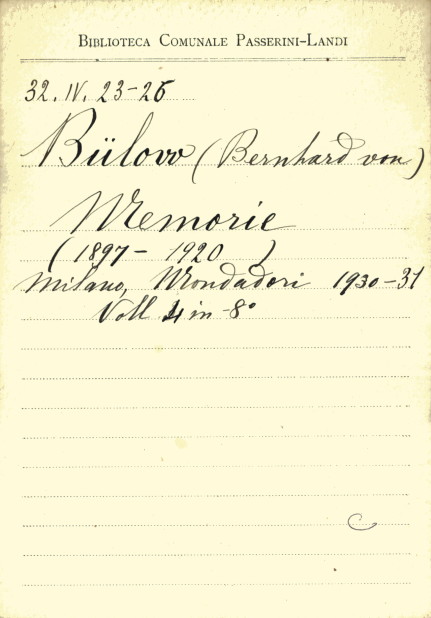 BIBLIOTECA COMUNALE PASSERINI-LANDI
32. IV. 23-26
Bülow (Bernhard von)
Memorie
(1897 - 1920)
Milano, Mondadori 1930-31
Voll 4 in-8°
C